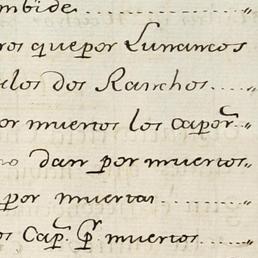 mbide ........... "
ros que por Lunancos
ulos dos Ranchos ... "
or muertos los capor. "
no dan por muertos "
por muertas ..... "
os Cap.^n p.^r muertos ..... "